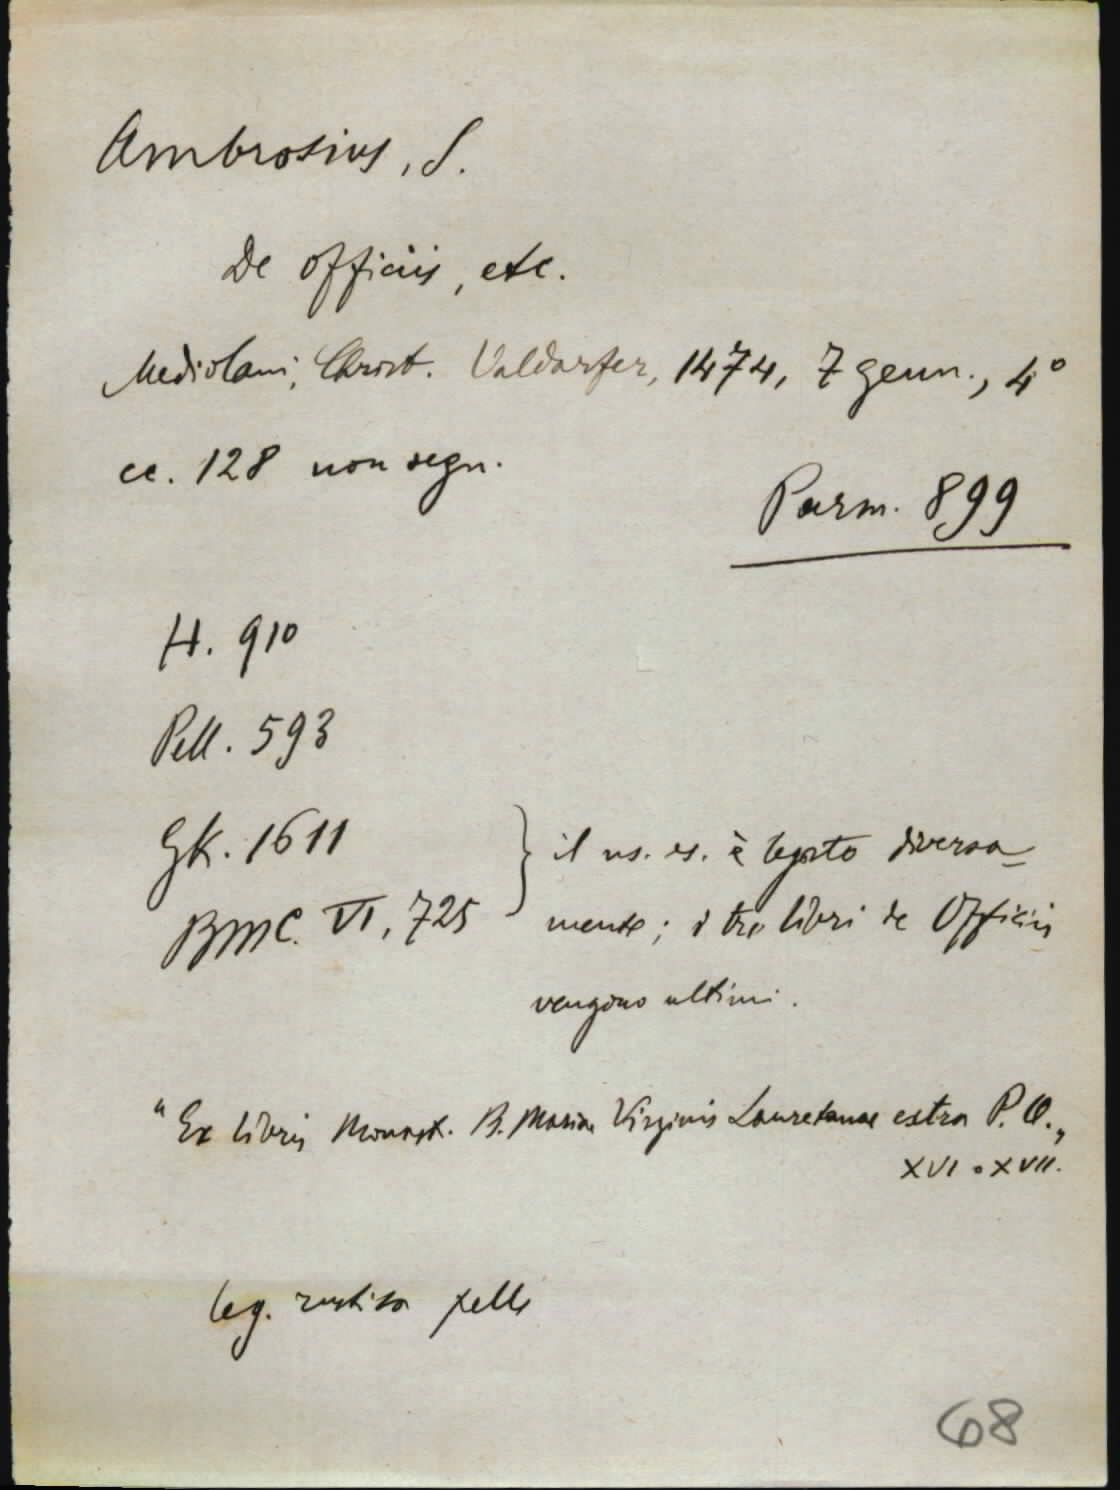 Ambrosius, S.
De officiis, etc.
Mediolani, Christ. Valdarfer, 1474, 7 genn., 4°
cc. 128 non segn.
Parm. 899
H. 910
Pell. 593
GK. 1611
BMC. VI, 725
} il ns. es. è legato diversa=
mente; i tre libri de Officiis
vengono ultimi.
"Ex libris Monast. B. Mariae Virginis Lauretanae extra P. O.„
XVI o XVII.
leg. rustica pelle
68